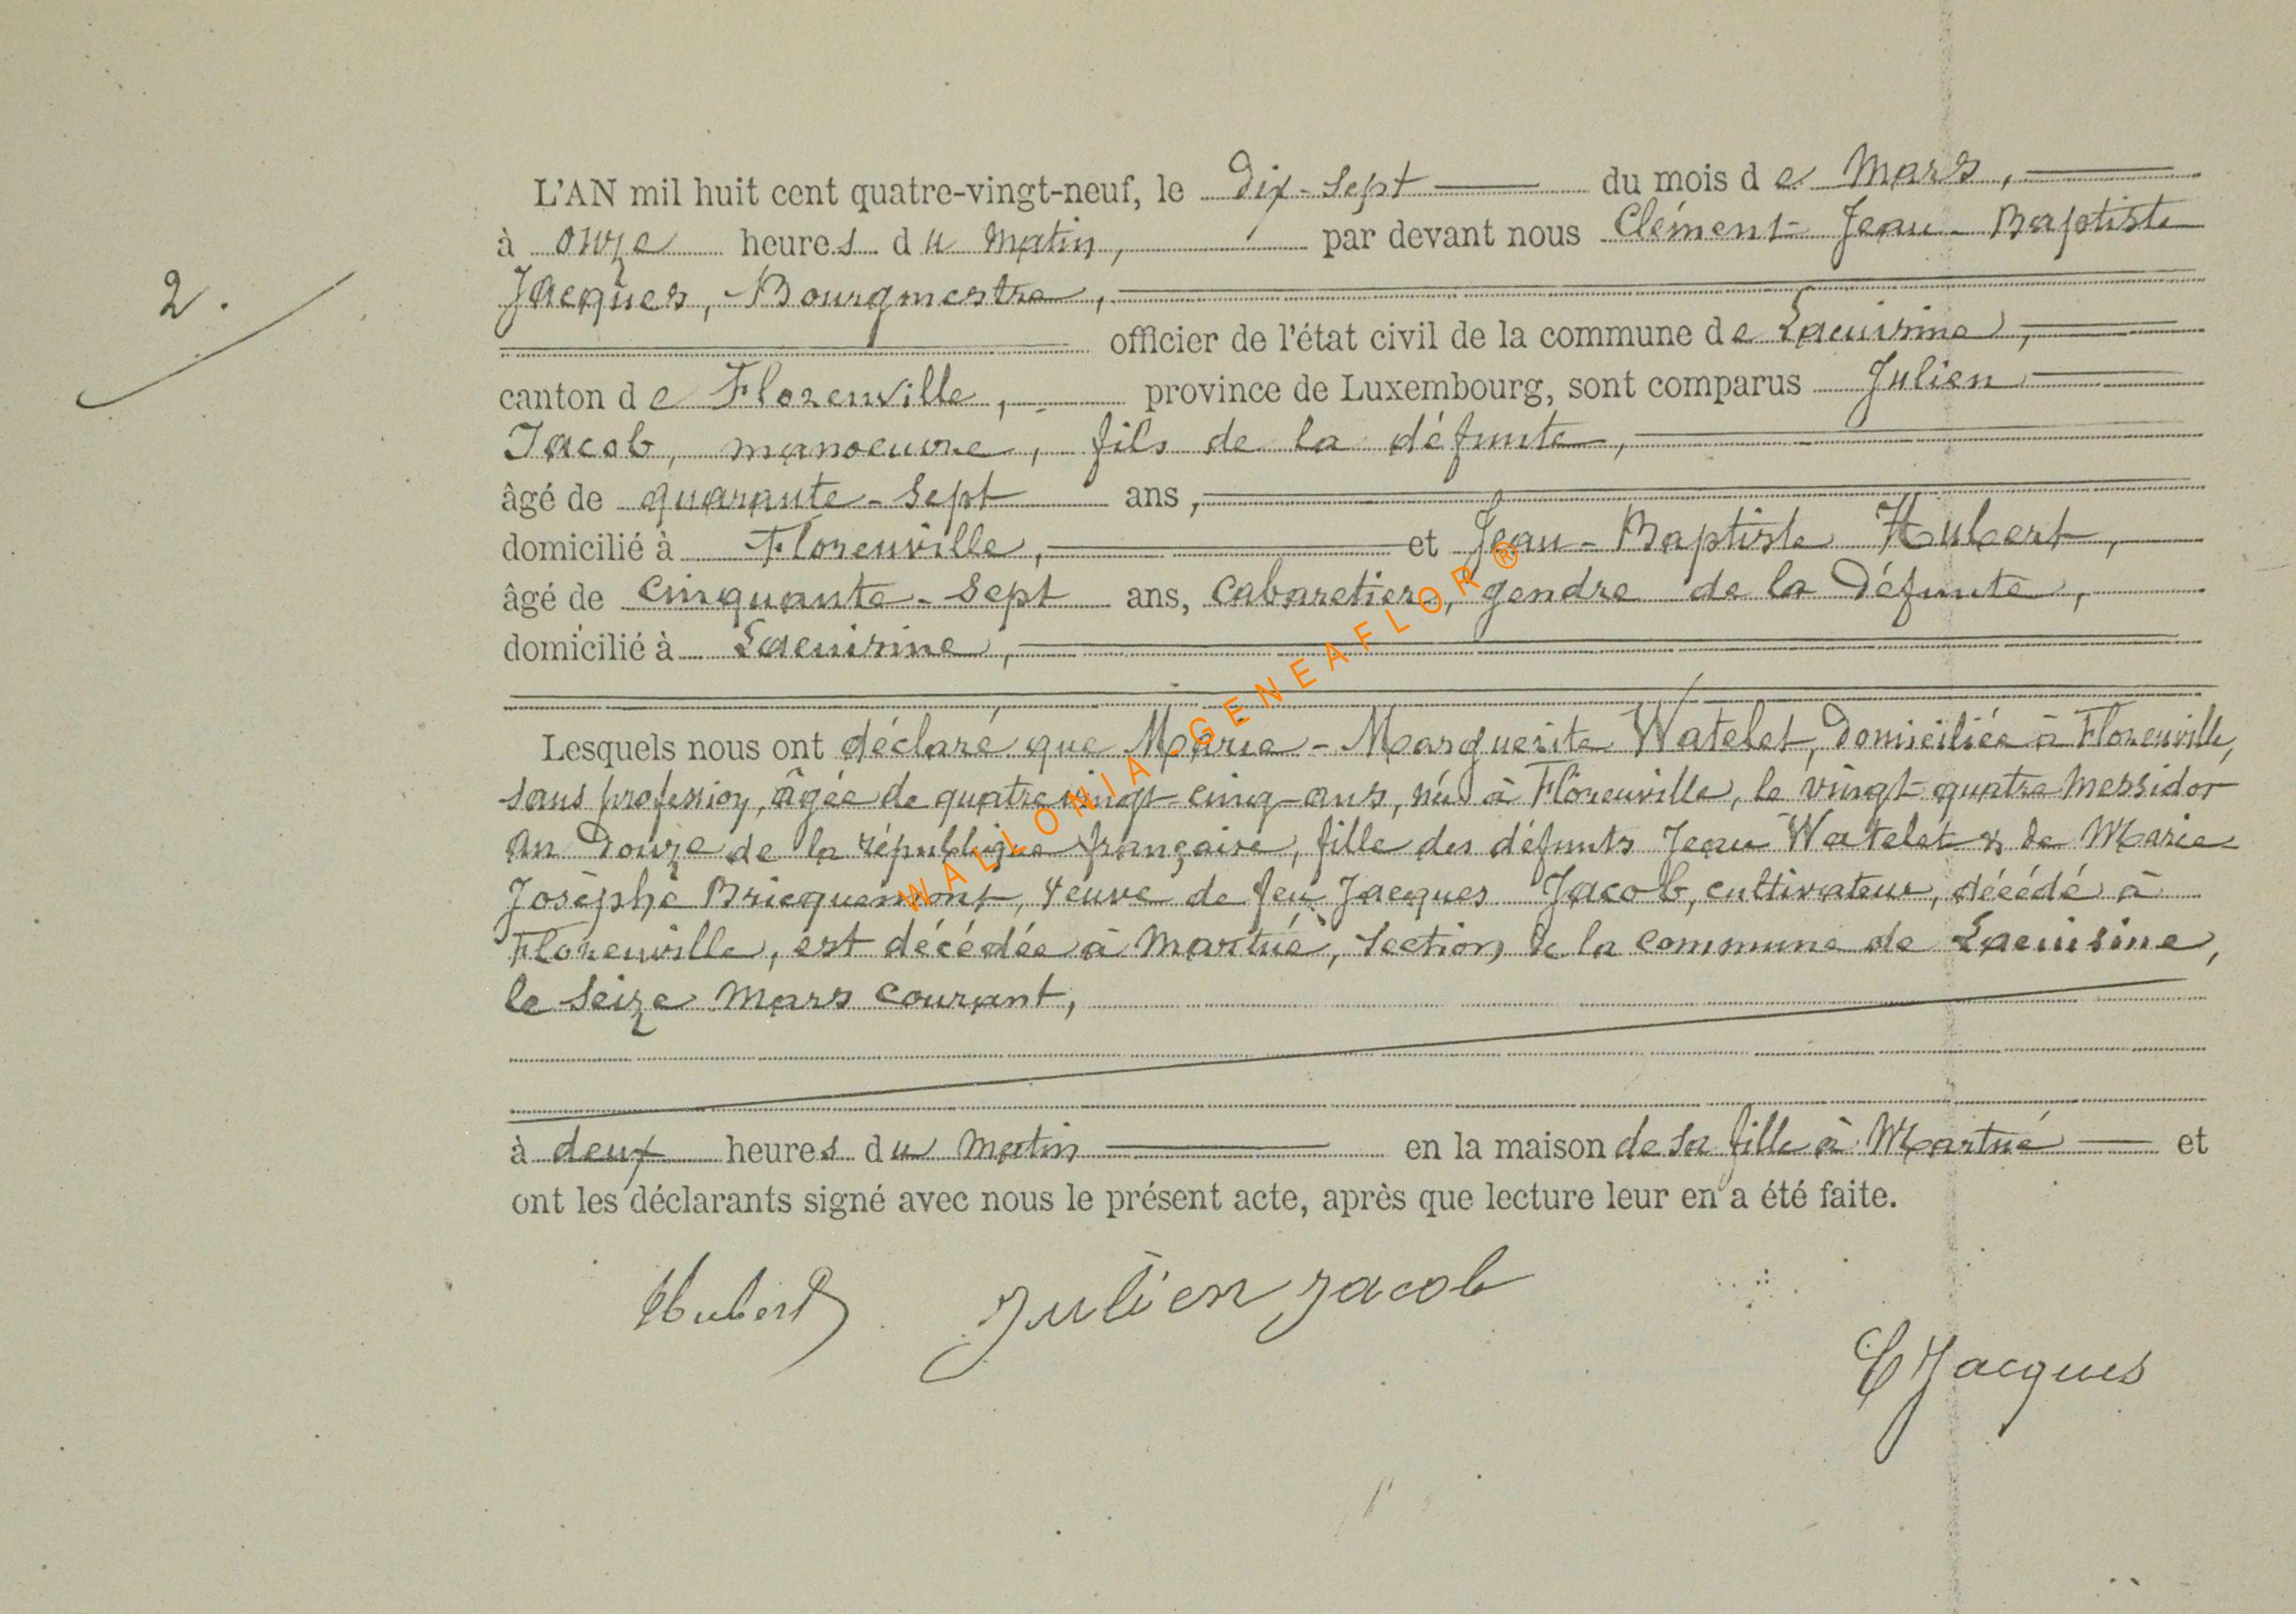 L'AN mil huit cent quatre-vingt-neuf, le Dix-Sept du mois de Mars,
à onze heures du matin, par devant nous Clément-Jean-Baptiste
Jacques, Bourgmestre,
officier de l'état civil de la commune de Lacuisine,
2.
canton de Florenville, province de Luxembourg, sont comparus Julien
Jacob, manoeuvre, fils de la défunte,
âgé de quarante-sept ans,
domicilié à Florenville, et Jean-Baptiste Hubert,
âgé de cinquante-sept ans, cabaretier, gendre de la défunte,
domicilié à Lacuisine,
Lesquels nous ont déclaré que Marie-Marguerite Watelet, domiciliée à Florenville,
sans profession, âgée de quatre vingt-cinq-ans, née à Florenville, le vingt-quatre Messidor
an Douze de la république française, fille des défunts Jean Watelet & de Marie
Josèphe Bricquemont, veuve de feu Jacques Jacob, cultivateur, décédé à
Florenville, est décédée à Martué, Section de la commune de Lacuisine,
le seize Mars courant,
à deux heures du matin en la maison de sa fille à Martué et
ont les déclarants signé avec nous le présent acte, après que lecture leur en a été faite.
Hubert Julien Jacob
CJacques
WALLONIA-GENEAFLOR®